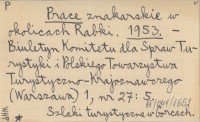 P
Prace znakarskie w
okolicach Rabki. 1953. –
Biuletyn Komitetu dla Spraw Tu-
rystyki i Polskiego Towarzystwa
Turystyczno-Krajoznawczego
(Warszawa) 1, nr 27: 5.
Szlaki turystyczne w Gorcach.
WHP